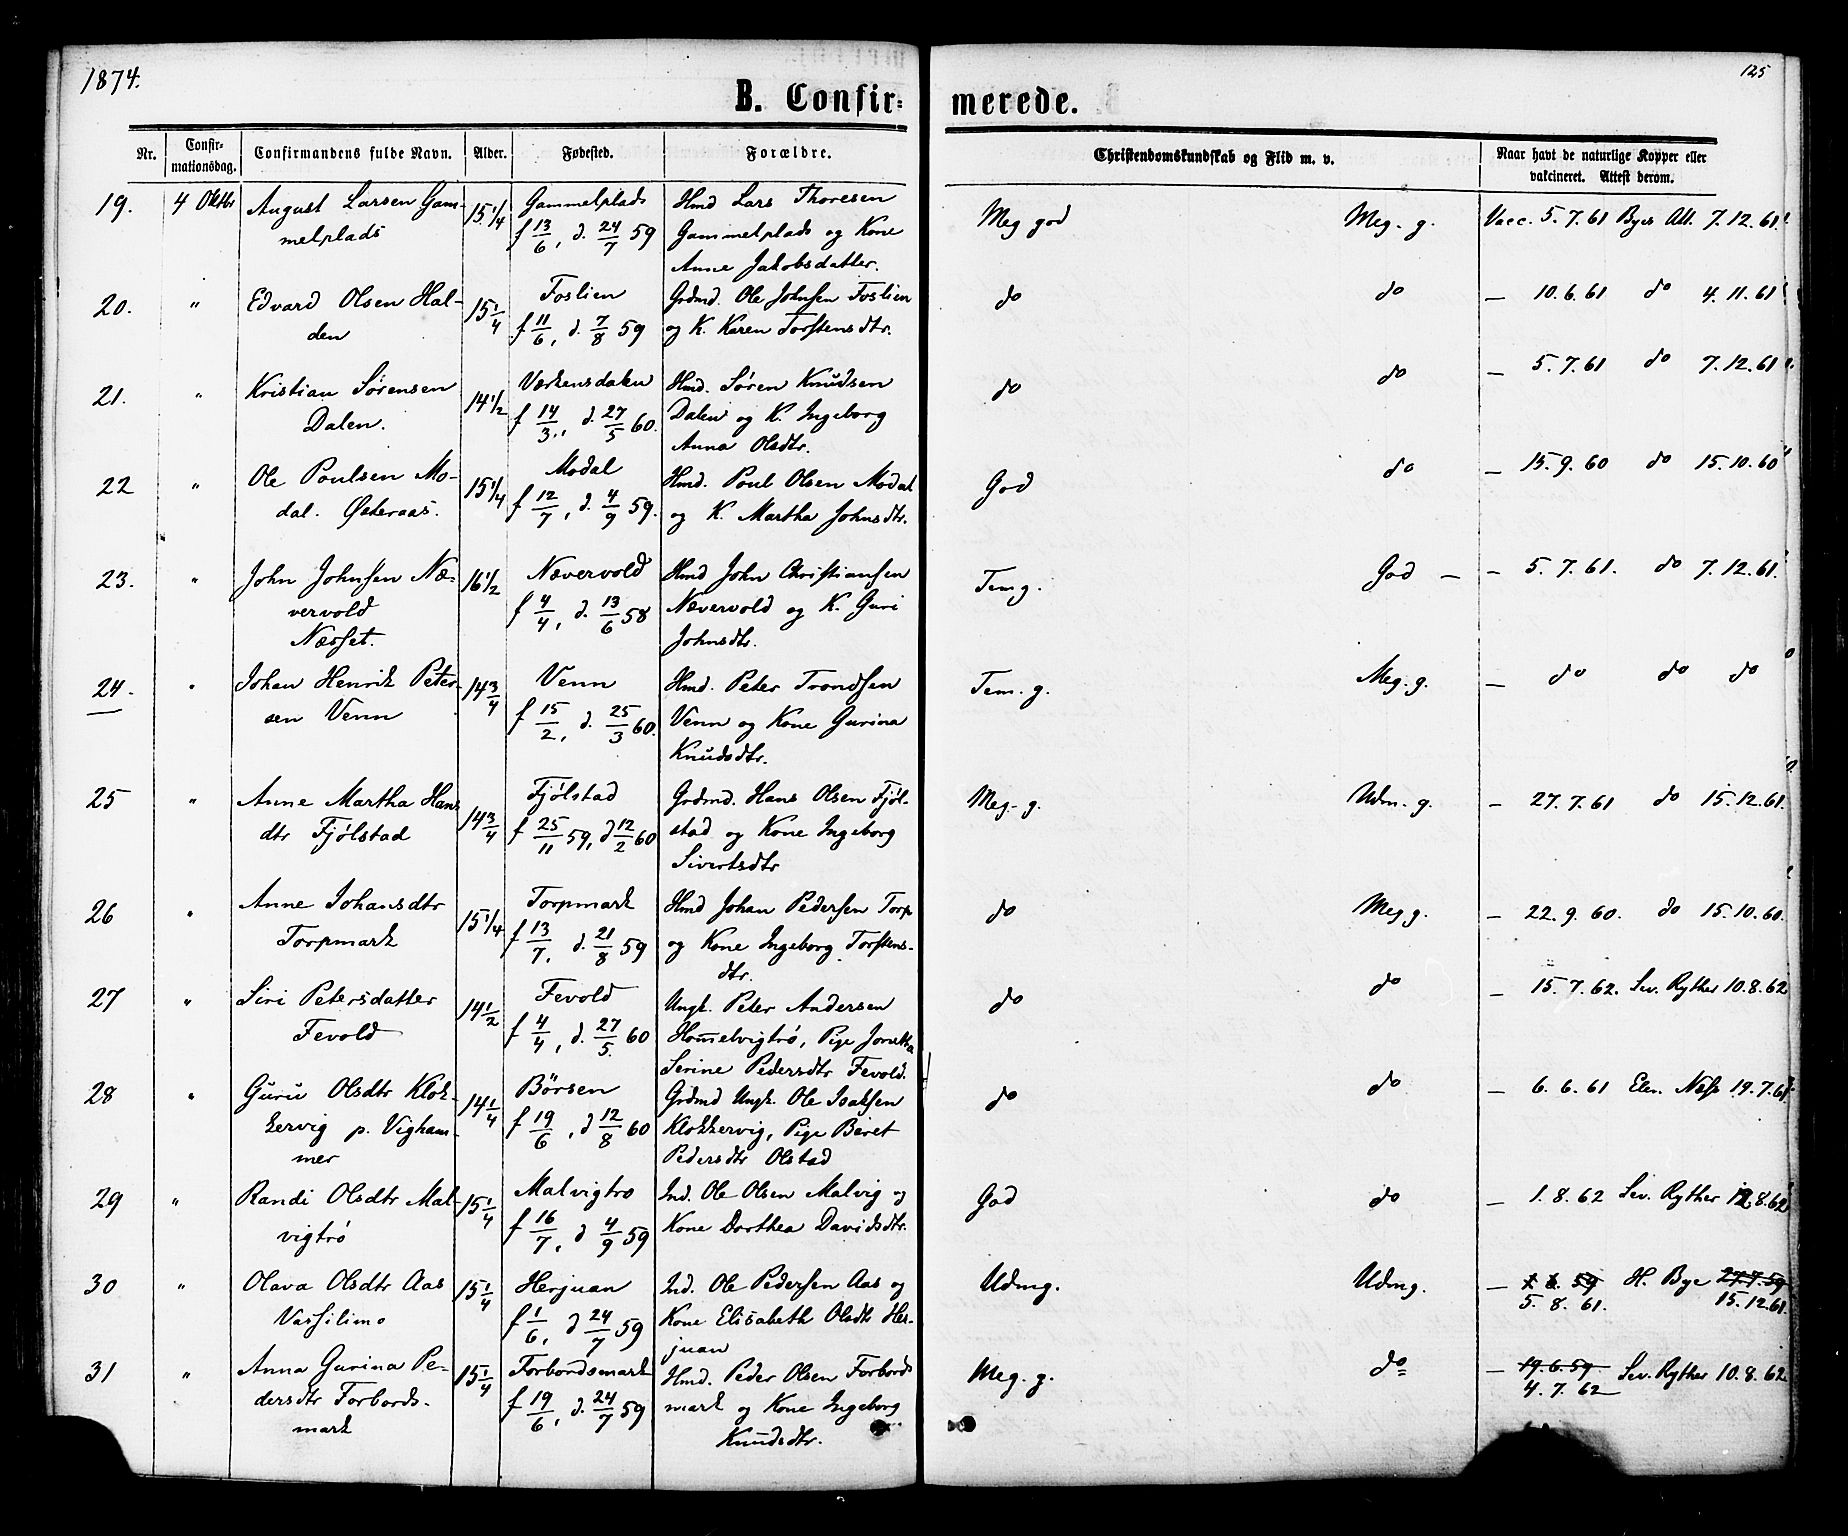 1874.
125
B. Confir= merede.
Nr. Confir-mationsdag. Confirmandens fulde Navn. Alder. Fødested. Forældre. Christendomskundskab og Flid m. v. Naar havt de naturlige Kopper eller vakcineret. Attest derom.
19. 4 Oktbr August Larsen Gam- 15 1/4 Gammelplads Hmd Lars Thoresen Meg god Meg. g. Vacc. 5.7.61 Byes Att. 7.12.61
melplads f 13/6, d. 24/7 59 Gammelplads og Kone
Anne Jakobsdatter.
20. " Edvard Olsen Hal- 15 1/4 Foslien Grdmd. Ole Johnsen Foslien do do — 10.6.61 do 4.11.61
den f 11/6, d. 7/8 59 og K. Karen Torstensdtr.
21. " Kristian Sørensen 14 1/2 Værkensdalen Hmd. Søren Knudsen do do — 5.7.61 do 7.12.61
Dalen. f 14/3, d. 27/5 60. Dalen og K. Ingeborg
Anna Olsdtr.
22 " Ole Poulsen Mo- 15 1/4 Modal Hmd. Poul Olsen Modal God do — 15.9.60 do 15.10.60
dal. Østeraas. f 12/7, d. 4/9 59. og K. Martha Johnsdtr.
23. " John Johnsen Næ- 16 1/2 Nævervold Hmd John Christiansen Tem g. God — — 5.7.61. do 7.12.61.
vervold f 4/4, d. 13/6 58 Nævervold og K. Guri
Næsset. Johnsdtr.
24. " Johan Henrik Peter- 14 3/4 Venn Hmd. Peter Trondsen Tem. g. Meg. g. — do do do
sen Venn f 15/2, d. 25/3 60. Venn og Kone Gurina
Knudsdtr.
25 " Anne Martha Hans 14 3/4 Fjølstad Grdmd. Hans Olsen Fjøl- Meg. g. Udm. g. — 27.7.61 do 15.12.61.
dtr Fjølstad f 25/11 59, d 12/2 60 stad og Kone Ingeborg
Sivertsdtr
26 " Anne Johansdtr 15 1/4 Torpmark Hmd Johan Pedersen Torp do Meg g. — 22.9.60. do 15.10.60.
Torpmark f 13/7, d. 21/8 59 og Kone Ingeborg Torstens-
dtr.
27 " Siri Petersdatter 14 1/2 Fevold Ungk. Peter Andersen do do — 15.7.62. Sev. Ryther 10.8.62
Fevold f 4/4, d. 27/5. 60 Hommelvigtrø, Pige Jonetta
Serine Pedersdtr Fevold.
28 " Guru Olsdtr Klok- 14 1/4 Börsen Grdmd Ungk. Ole Isaksen do do — 6.6.61 Elen. Næss 19.7.61
kervig p. Vigham- f 19/6, d 12/8 60 Klokkervig, Pige Beret
mer Pedersdtr Olstad
29 " Randi Olsdtr Mal- 15 1/4 Malvigtrø Ind. Ole Olsen Malvig og God do — 1.8.62 Sev. Ryther 12.8.62
vigtrø f 16/7, d 4/9 59 Kone Dorthea Davidsdtr.
30 " Olava Olsdtr Aas 15 1/4 Herjuan Ind. Ole Pedersen Aas og Udmg. Udmg. — 1 6. 59 H. Bye 27.7.59
Vassilimo f 1/6, d 24/7 59 Kone Elisabeth Olsdtr Her- 5.8.61. 15.12.61.
juan
31 " Anna Gurina Pe- 15 1/4 Forbordsmark Hmd. Peder Olsen Forbords Meg. g. do — 19.6.59 Sev. Ryther 10.8.62
dersdtr Forbords- f 19/6, d. 24/7 59 mark og Kone Ingeborg 4.7.62
mark Knudsdtr.